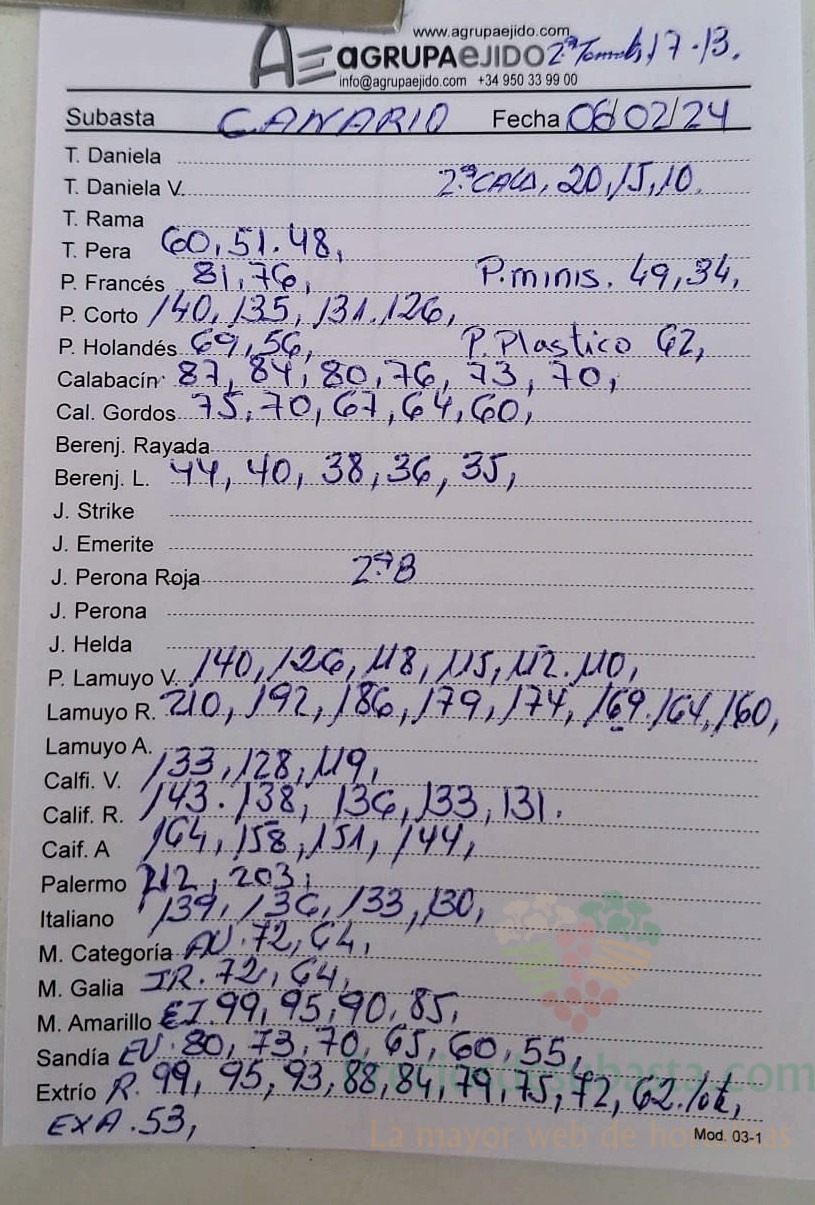 www.agrupaejido.com
AE aGRUPAEJIDO 2ª Tomate, 17-13.
info@agrupaejido.com +34 950 33 99 00
Subasta CANARIO Fecha 06/02/24
T. Daniela
T. Daniela V. 2ª CALA, 20, 15, 10.
T. Rama
T. Pera 60, 51. 48,
P. Francés 81, 76, P. minis. 49, 34,
P. Corto 140, 135, 131. 126,
P. Holandés 69, 56, P. Plastico 62,
Calabacín 87, 84, 80, 76, 73, 70,
Cal. Gordos 75, 70, 67, 64, 60,
Berenj. Rayada
Berenj. L. 44, 40, 38, 36, 35,
J. Strike
J. Emerite
J. Perona Roja 2ª B
J. Perona
J. Helda
P. Lamuyo V. 140, 126, 118, 115, 112. 110,
Lamuyo R. 210, 192, 186, 179, 174, 169. 164, 160,
Lamuyo A.
Calfi. V. 133, 128, 119,
Calif. R. 143. 138, 136, 133, 131.
Caif. A 164, 158, 151, 144,
Palermo 212, 203,
Italiano 139, 136, 133, 130,
M. Categoría AV. 72, 64,
M. Galia IR. 72, 64,
M. Amarillo EI 99, 95, 90, 85,
Sandía EV. 80, 73, 70, 65, 60, 55,
Extrío R. 99, 95, 93, 88, 84, 79, 75, 72, 62.
EXA. 53,
subasta.com
La mayor web de
Mod. 03-1